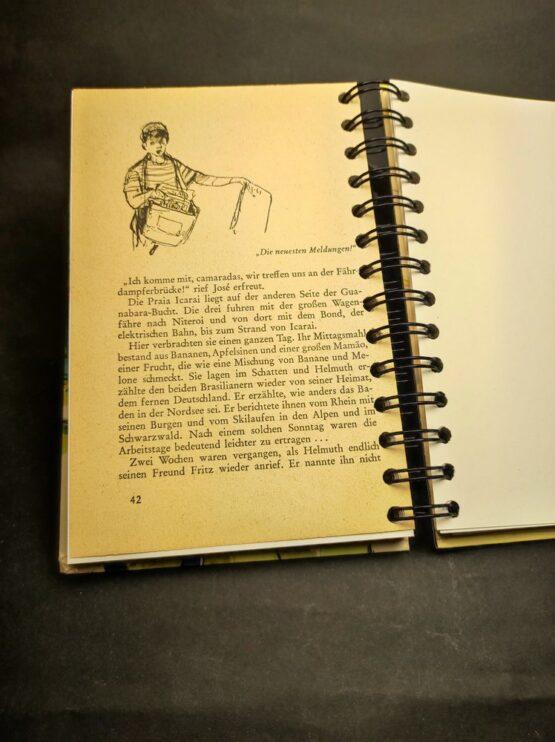 „Die neuesten Meldungen!“
„Ich komme mit, camaradas, wir treffen uns an der Fähr-
dampferbrücke!“ rief José erfreut.
Die Praia Icarai liegt auf der anderen Seite der Gua-
nabara-Bucht. Die drei fuhren mit der großen Wagen-
fähre nach Niteroi und von dort mit dem Bond, der
elektrischen Bahn, bis zum Strand von Icarai.
Hier verbrachten sie einen ganzen Tag. Ihr Mittagsmahl
bestand aus Bananen, Apfelsinen und einer großen Mamão,
einer Frucht, die wie eine Mischung von Banane und Me-
lone schmeckt. Sie lagen im Schatten und Helmuth er-
zählte den beiden Brasilianern wieder von seiner Heimat,
dem fernen Deutschland. Er erzählte, wie anders das Ba-
den in der Nordsee sei. Er berichtete ihnen vom Rhein mit
seinen Burgen und vom Skilaufen in den Alpen und im
Schwarzwald. Nach einem solchen Sonntag waren die
Arbeitstage bedeutend leichter zu ertragen ...
Zwei Wochen waren vergangen, als Helmuth endlich
seinen Freund Fritz wieder anrief. Er nannte ihn nicht
42